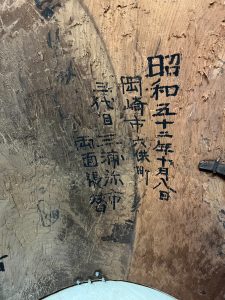 昭和五十二年十月八日
岡崎市六供町
三代目三浦弥市
両面張替